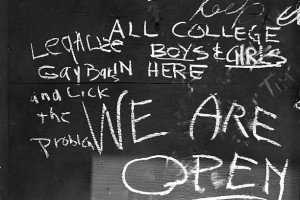 ALL COLLEGE
BOYS & GIRLS
HERE
Legalize
Gay Bar IN
and Lick
the
Problem
WE ARE
OPEN